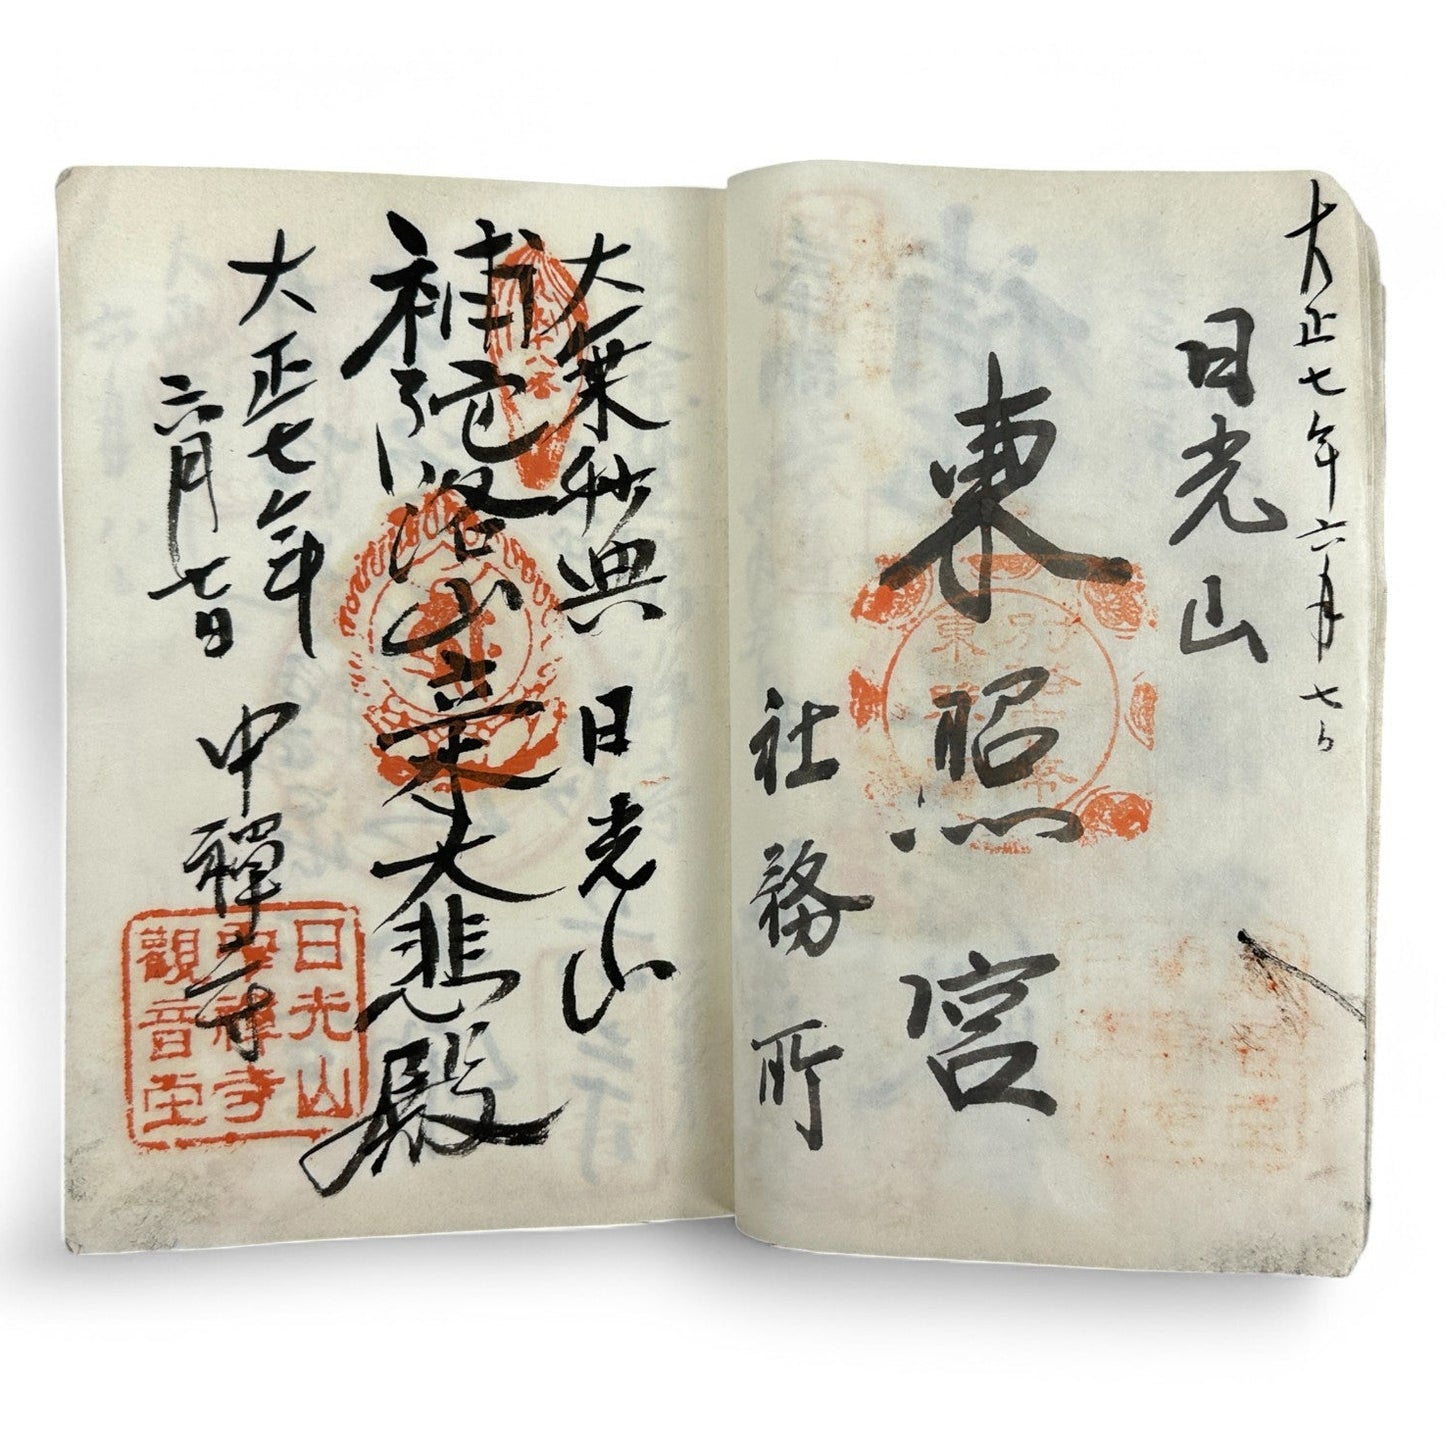 大正七年六月七日
日光山
東照宮
社務所
大乗妙典 日光山
補陀洛山立木大悲殿
大正七年
六月七日
中禅寺
日光山
中禅寺
観音堂